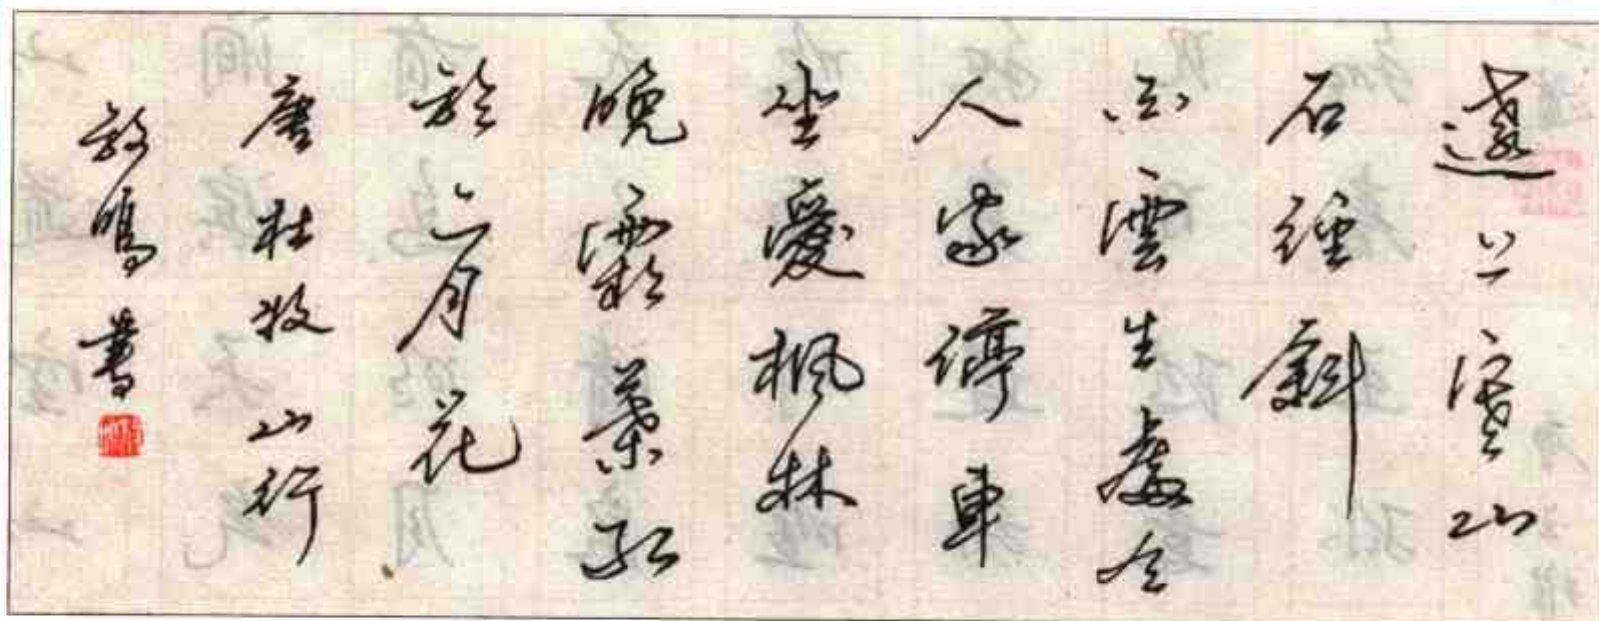 遠上寒山
石徑斜
白雲生處有
人家停車
坐愛楓林
晚霜葉紅
於二月花
唐杜牧山行
鳴書